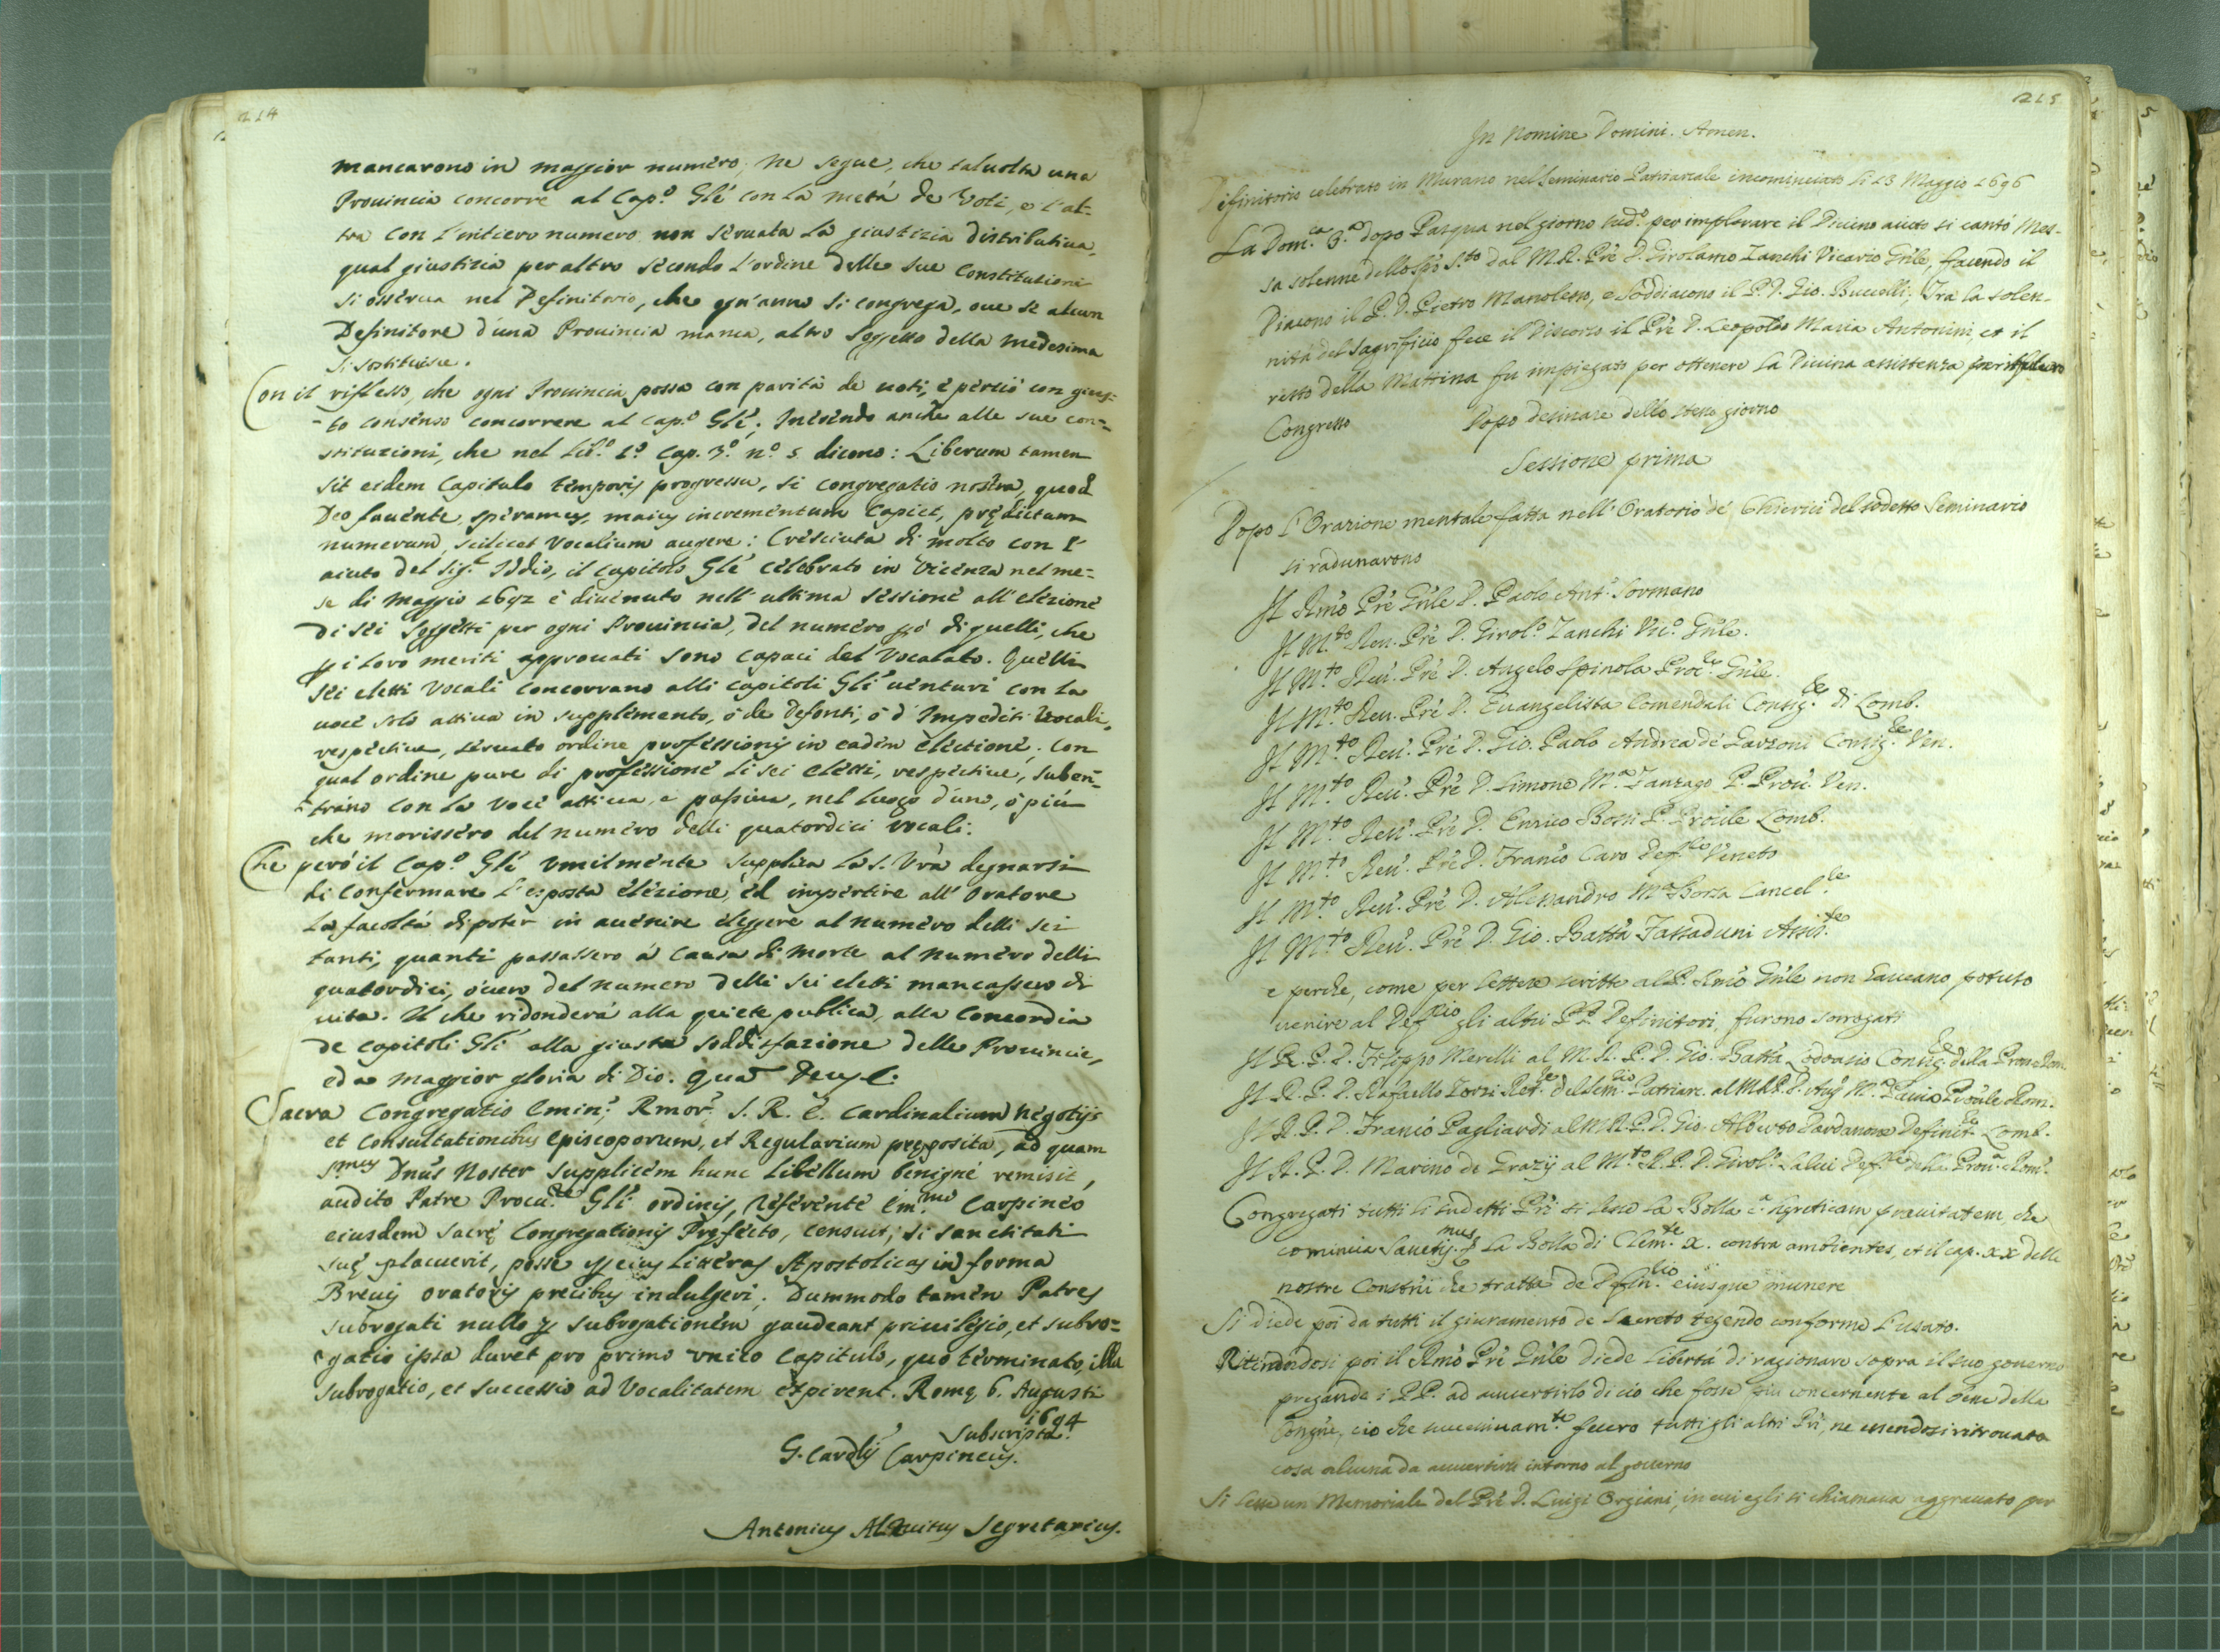 214
mancarono in maggior numéro; Ne segue, che taluolta una
Prouincia concorre al Cap.º Glé con la metá de Voti, e l'al-
tra con l'intiero numero non séruata la giustizia distributiua,
qual giustizia per altro sécondo l'ordine delle sue Constitutioni
si ossérua nel Definitorio, che ogn'anno si congrega, oue se alcun
Definitore d'una Prouincia manca, altro Soggetto della medesima
si sostituisce.
Con il riflesso, che ogni Prouincia possa con paritá de uoti, e perció con gius-
-to consénso concorrere al Cap.º Glé; Inérendo anche alle sue con=
stituzioni, che nel Lib.º 1.º Cap. 3.º n.º 5 dicono: Liberum tamen
sit eidem Capitulo témporis progressu, si congregatio nostra, quod
Deo fauénte, speramus, maius incrementum Capiet, prędictum
numerum, scilicet Vocalium augere: Crésciuta di molto con l'
aiuto del Sig.r Iddio, il Capitolo Glé célébrato in Vicénza nel me=
se di Maggio 1692 é diuénuto nell'ultima séssione all'elézione
di séi soggétti per ogni Prouincia, del numéro pó di quelli, che
p i loro meriti approuati sono capaci del Vocalato. Quélli
séi eletti Vocali concorrano alli Capitoli Gli uénturi con la
uocé solo attiua in supplémento, ó de Defonti, ó d'Impediti Vocali,
respéctiue, séruato ordine proféssionis in eadém eléctioné. Con
qual ordine pure di proféssioné li sei elétti, respéctiue, suben=
trano con la Vocé attiua, e passiua, nel luogo d'uno, ó piú
che morisséro del numéro delli quatordici vocali.
Che peró il Cap.º Glé vmilménte supplica la S. Vrá degnarsi
di Confermare l'esposta elézione, ed impértire all'Oratore
la facoltá di poter in auénire eléggere al numéro delli sei
tanti, quanti passassero á causa di Morte al numéro delli
quatordici, óuero del numero delli sei eletti mancassero di
uita. Il che ridonderá alla quiete publica, alla Concordia
de Capitoli Gli alla giusta soddisfazione delle Prouincie,
ed a maggior gloria di Dio. Quā Deus &c:
Sacra Congregatio Emin: Rmor: S. R. E. Cardinalium Négotijs
et Consultationibus Episcoporum, et Regularium pręposita, ad quam
S.mus Dnús Noster supplicém hunc Libéllum bénigné remisit,
audito Patre Procu.re Glí ordinis, référénte Em.mo Carpinéo
eiusdem Sacrę Congregationis Pręfécto, censuit, si Sanctitati
suę placuerit, posse p eius littéras Apostolicas in forma
Bréuis oratoris précibus indulgeri; Dummodo tamén Patres
subrogati nullo p subrogationém gaudeant priuilegio, et subro=
gatio ipsa duret pro primo vnico Capitulo, quo términato, illa
subrogatio, et successio ad Vocalitatem expirent. Romę 6. Augusti
1694
Subscripta.
G. Card.lis Carpineus.
Antonius Segretarius.
215
In Nomine Domini. Amen.
Definitorio celebrato in Murano nel Seminario Patriarcale incominciato li 13 Maggio 1696
La Dom.ca 3.a dopo Pasqua nel giorno sud.º per implorare il Diuino aiuto si cantó Mes-
sa solenne dello Spó S.to dal M.R. Pré D. Girolamo Zanchi Vicario Gnle, facendo il
Diacono il P. D. Pietro Manolesso, e Soddiacono il P. D. Gio. Buccelli; Tra la solen-
nitá del Sagrificio fece il Discorso il Pré D. Leopoldo Maria Antonini, et il
resto della Mattina fu impiegato per ottenere la Diuina assistenza
Congresso
Dopo desinare dello steso giorno
Sessione prima
Dopo l'Orazione mentale fatta nell'Oratorio de Chierici del sodetto Seminario
si radunarono
Il Rmo Pré Gnle D. Paolo Ant.º Sormano
Il M.to Reu. Pré D. Girol.º Zanchi Vic.º Gnle.
Il M.to Reu. Pré D. Angelo Spinola Proc.re Gnle.
Il M.to Reu. Pré D. Euangelista Comendali Consig.re di Lomb.
Il M.to Reu. Pré D. Gio. Paolo Andrea de Garzoni Consig.re Ven.
Il M.to Reu. Pré D. Simone M.a Zanzago P. Prou. Ven.
Il M.to Reu. Pré D. Enrico Bossi P. Prouíle Lomb.
Il M.to Reu. Pré D. Franco Caro Def.re Veneto
Il M.to Reu. Pré D. Alessandro M.a Borsa Cancel.re
Il M.to Reu. Pré D. Gio. Batta Tassaduni Assis.te
e perche, come per lettere scritte al P. Rmo Gnle non haueano potuto
uenire al Def.rio gli altri PP. Definitori, furono sorrogati
Il R. P. D. Filippo Merelli al M. R. P. D. Gio. Batta Lodouasio Consig.re della Prou. Rom.
Il R. P. D. Rafaello Terzi Ret.re del Sem.rio Patriarc. al M.R.P.D. M.a Prouíle Rom.
Il R. P. D. Franco Pagliardi al M.R.P.D. Gio. Alberto Pardanone Definit.re Lomb.
Il R. P. D. Marino de Grazij al M.to R. P. D. Girol.º Salui Def.re della Prou.a Rom.
Congregati tutti li sudetti Pri si lesse la Bolla c.a hęreticam prauitatem, che
comincia Sanctis.mus La Bolla di Clem.te X. contra ambientes, et il cap. XX delle
nostre Constrii che tratta de Defin.rio eiusque munere
Si diede poi da tutti il giuramento de Secreto tegendo conforme l'usato.
Ritirandosi poi il Rmo Pré Gnle diede libertá di ragionare sopra il suo gouerno
pregando i PP. ad auuertirlo di ció che fosse piu concernente al bene della
Congne, cio che succesiuam.te fecero tutti gli altri Pri, ne essendosi ritrouata
cosa alcuna da auuertirsi intorno al gouerno
Si lesse un Memoriale del Pré D. Luigi Orgiani, in cui egli si chiamaua aggrauato per